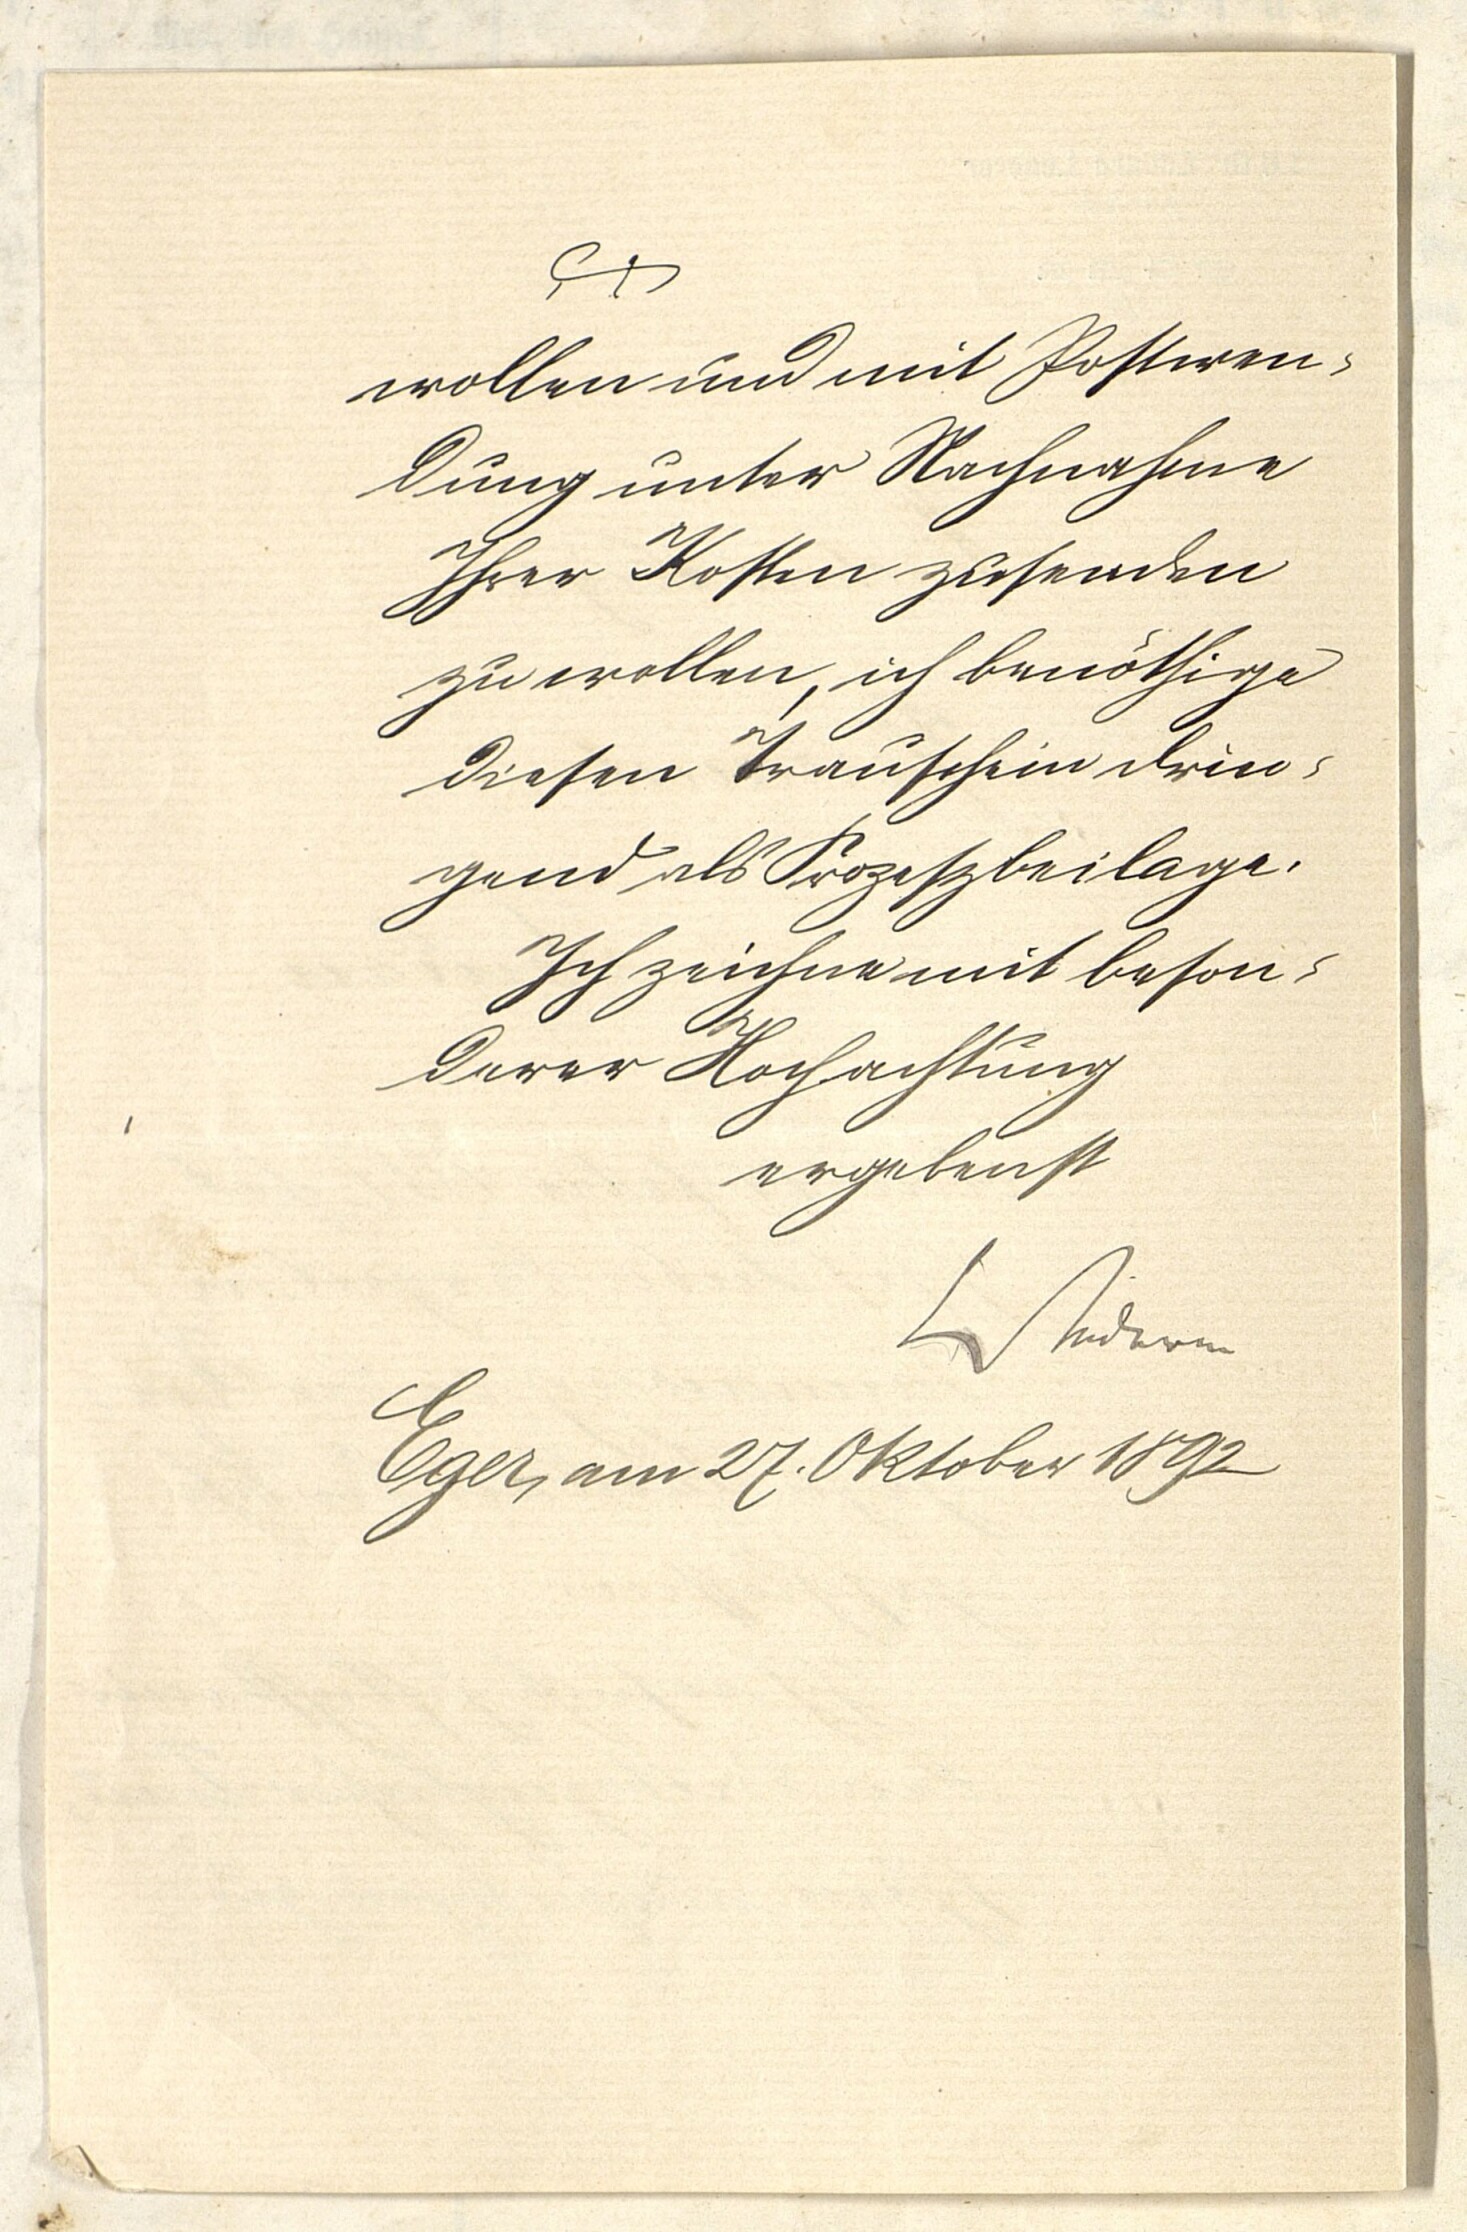 wollen und mit Postwen-
dung unter Nachnahme
Ihrer Kosten zusenden
zu wollen, ich benöthige
diesen Trauschein drin-
gend als Prozeßbeilage.
Ich zeichne mit beson-
derer Hochachtung
ergebenst
Eger, am 27. Oktober 1892